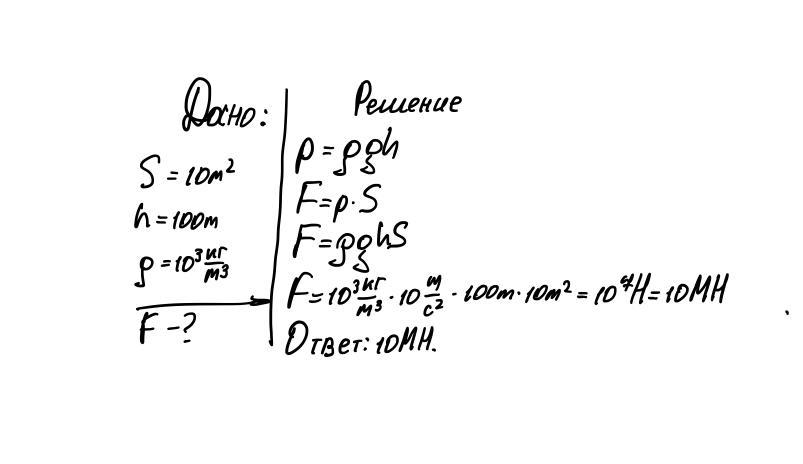 Дано:
S = 10m²
h = 100m
ρ = 10³ кг/m³
F - ?
Решение
p = ρgh
F = p · S
F = ρghS
F = 10³ кг/m³ · 10 m/c² · 100m · 10m² = 10⁷H = 10MH
Ответ: 10MH.